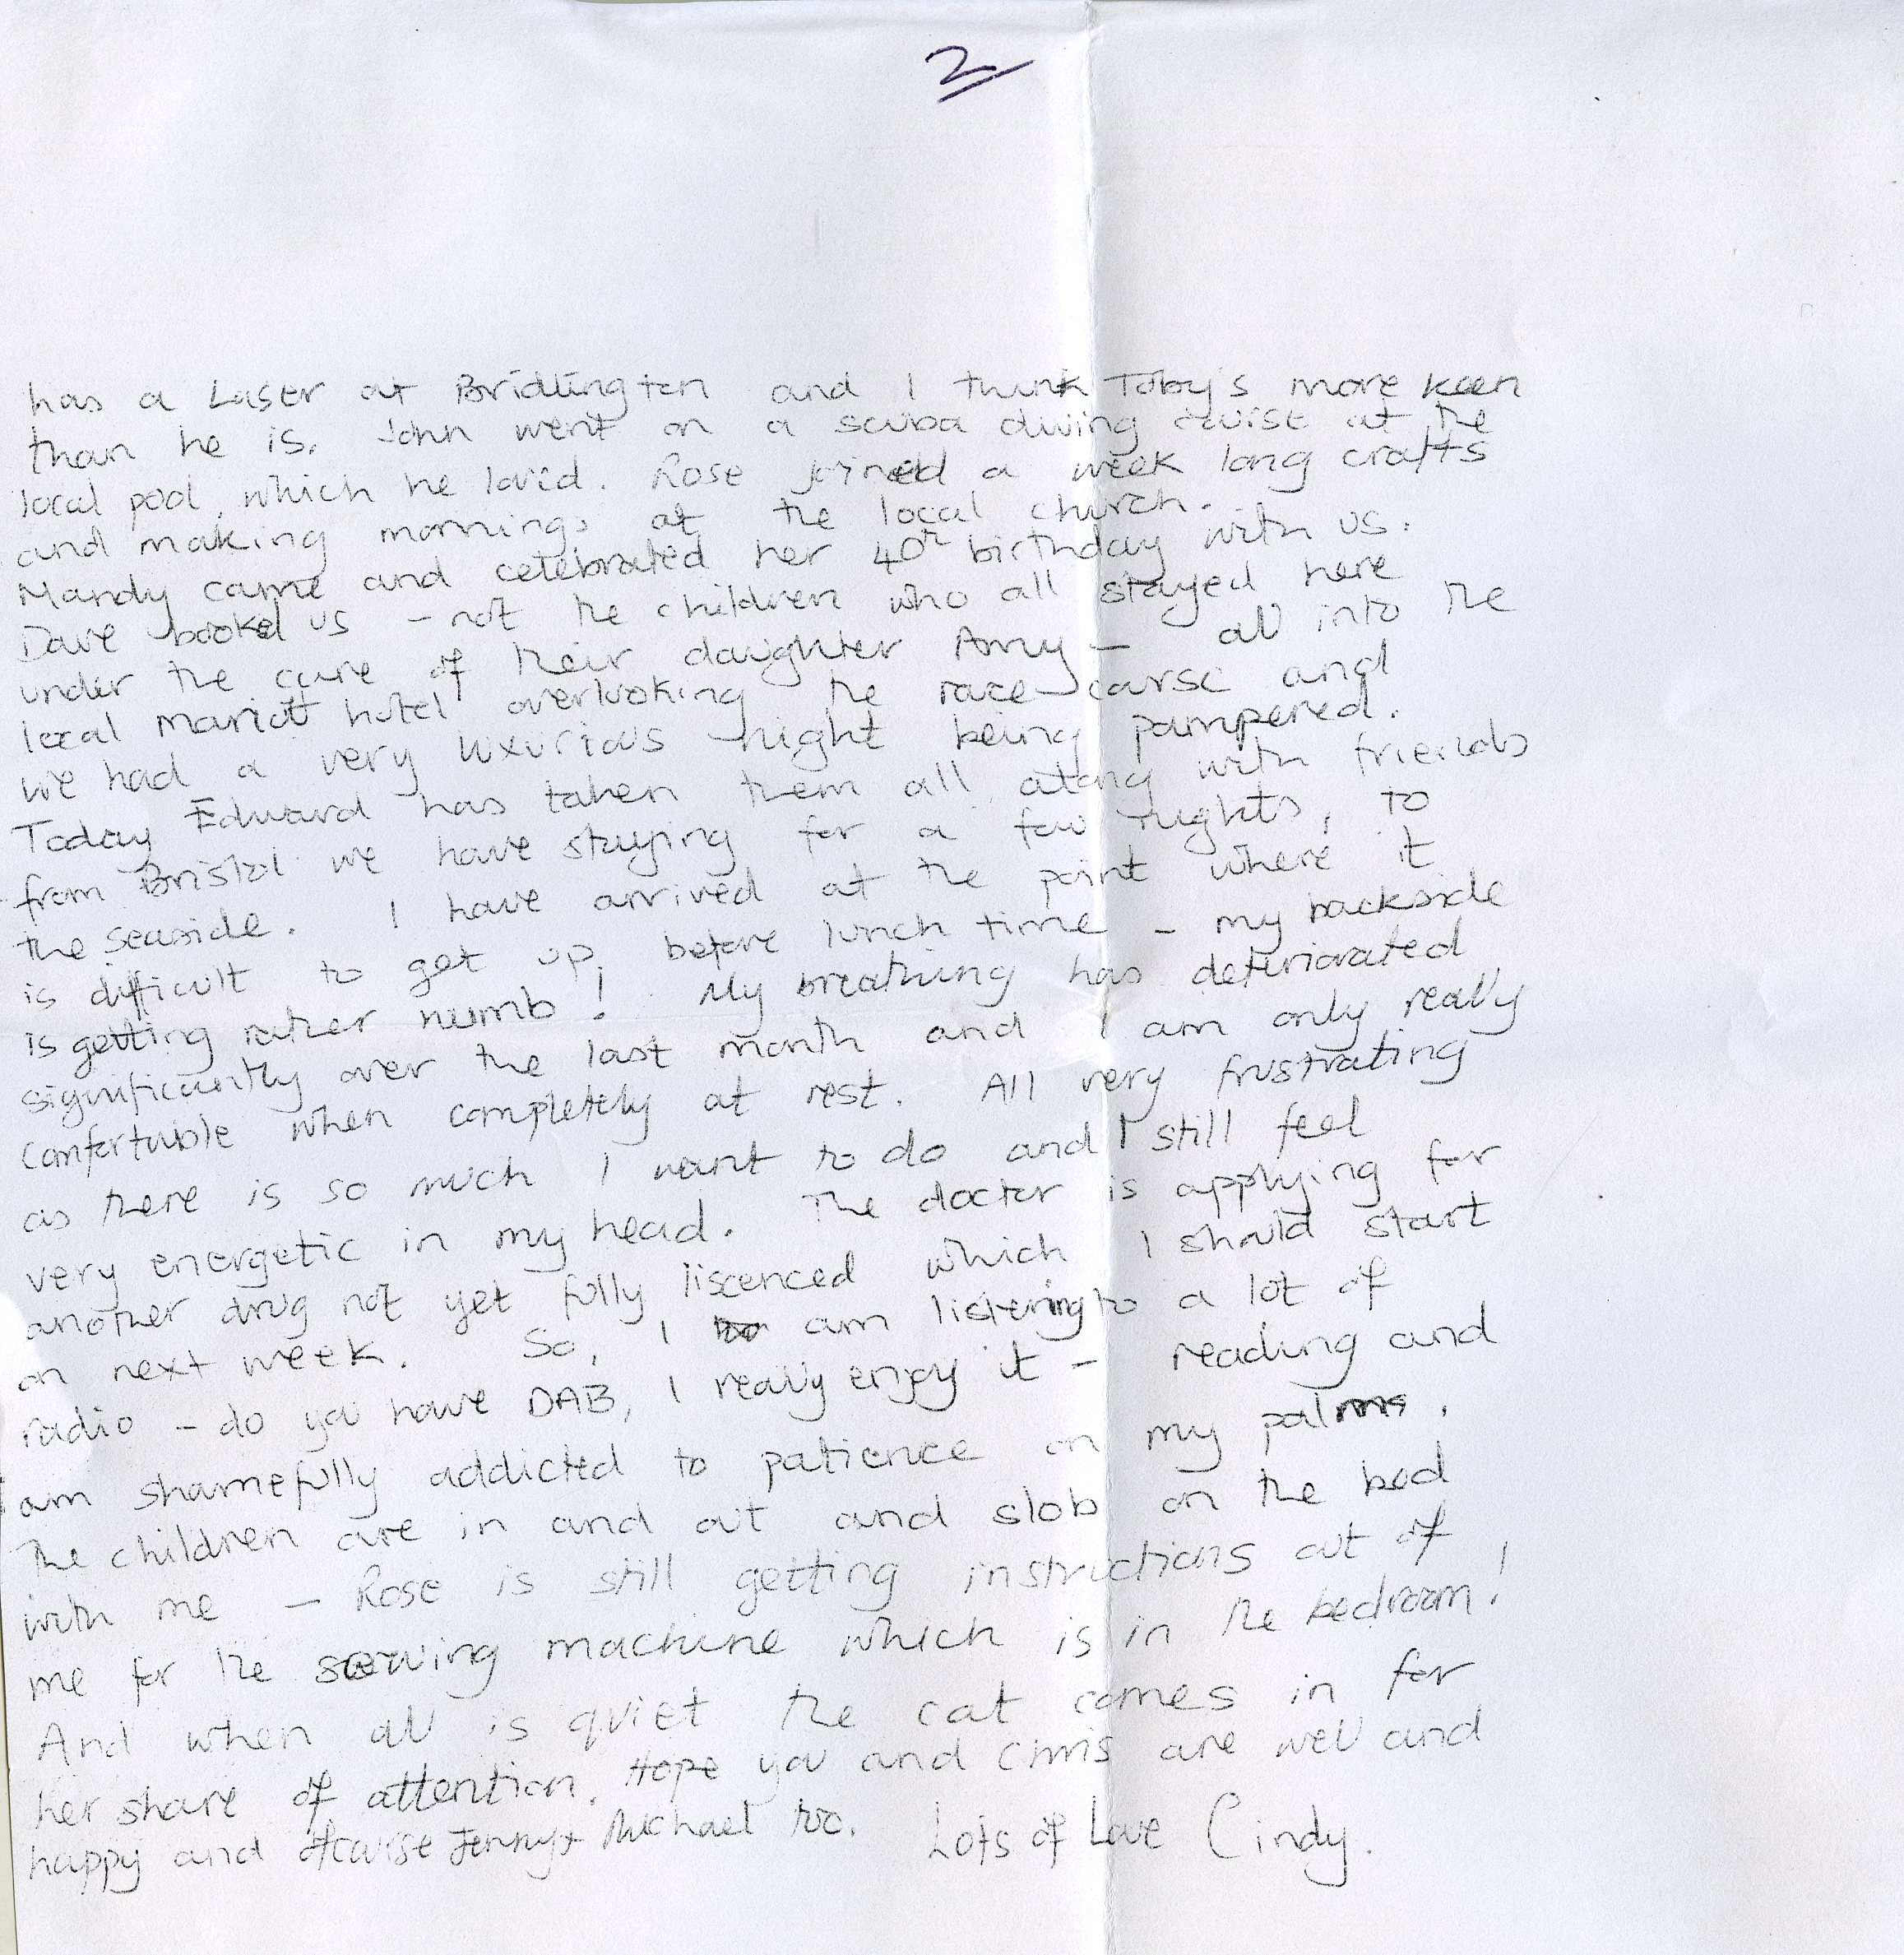 2
has a Laser at Bridlington and I think Toby's more keen
than he is. John went on a scuba diving course at the
local pool, which he lov'd. Rose joined a week long crafts
and making mornings at the local church.
Mandy came and celebrated her 40th birthday with us.
Dave booked us - not the children who all stayed here
under the care of their daughter Amy - all into the
local mariott hotel overlooking the race course and
we had a very luxurious night being pampered.
Today Edward has taken them all, along with friends
from Bristol we have staying for a few nights, to
the seaside. I have arrived at the point where it
is difficult to get up before lunch time - my backside
is getting rather numb! My breathing has deteriorated
significantly over the last month and I am only really
comfortable when completely at rest. All very frustrating
as there is so much I want to do and I still feel
very energetic in my head. The doctor is applying for
another drug not yet fully liscenced which I should start
on next week. So, I am listening to a lot of
radio - do you have DAB, I really enjoy it - reading and
am shamefully addicted to patience on my palm.
The children are in and out and slob on the bed
with me - Rose is still getting instructions out of
me for the sewing machine which is in the bedroom!
And when all is quiet the cat comes in for
her share of attention. Hope you and Chris are well and
happy and Jenny + Michael too. Lots of Love Cindy.